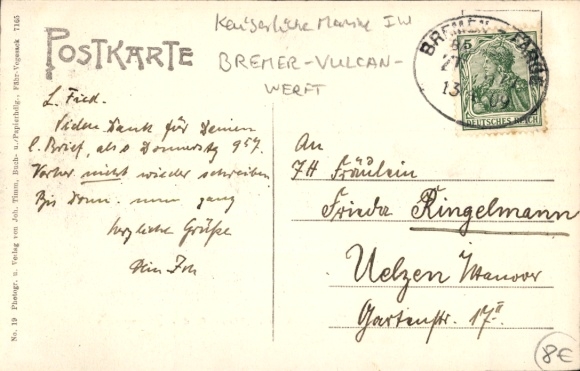 POSTKARTE
Kaiserliche Marine IW
BREMER-VULCAN-
WERFT
BREMEN
13 8 09
DEUTSCHES REICH
L. Fied.
Vielen Dank für Deinen
l. Brief, also Donnerstg 957.
Vorher nicht wieder schreiben
Bis Donn. nun ganz
herzliche Grüße
Dein Joh
An
Fräulein
Frieda Ringelmann
Uelzen Hannover
Gartenstr. 17 II
8€
No. 19 Photogr. u. Verlag von Joh. Timm, Buch- u. Papierhdlg., Fähr-Vegesack 7165